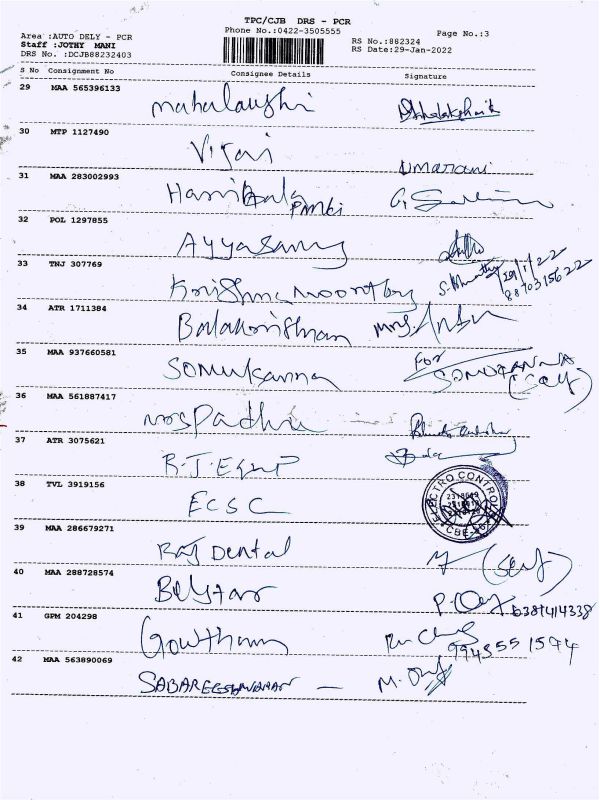 TPC/CJB DRS - PCR
Phone No.:0422-3505555
Page No.:3
Area :AUTO DELY - PCR
Staff :JOTHY MANI
DRS No. :DCJB88232403
RS No.:882324
RS Date:29-Jan-2022
S No Consignment No Consignee Details Signature
29 MAA 565396133
Mahalaxshi
30 MTP 1127490
Vijai Umarani
31 MAA 283002993
32 POL 1297855
Ayyasamy
33 TNJ 307769
Krishnamoorthy S. Murthy 29/1/22
8870315622
34 ATR 1711384
Balakrishnan Mrs. Anbu
35 MAA 937660581
Somukanna For SOMUKANNA (Self)
36 MAA 561887417
Mrs Padma
37 ATR 3075621
38 TVL 3919156
ECSC
ELECTRO CONTROL
39 MAA 286679271
Raj Dental (self)
40 MAA 288728574
Belstar 6381414338
41 GPM 204298
Gowtham 9943551574
42 MAA 563890069
SABAREESHWARAN —